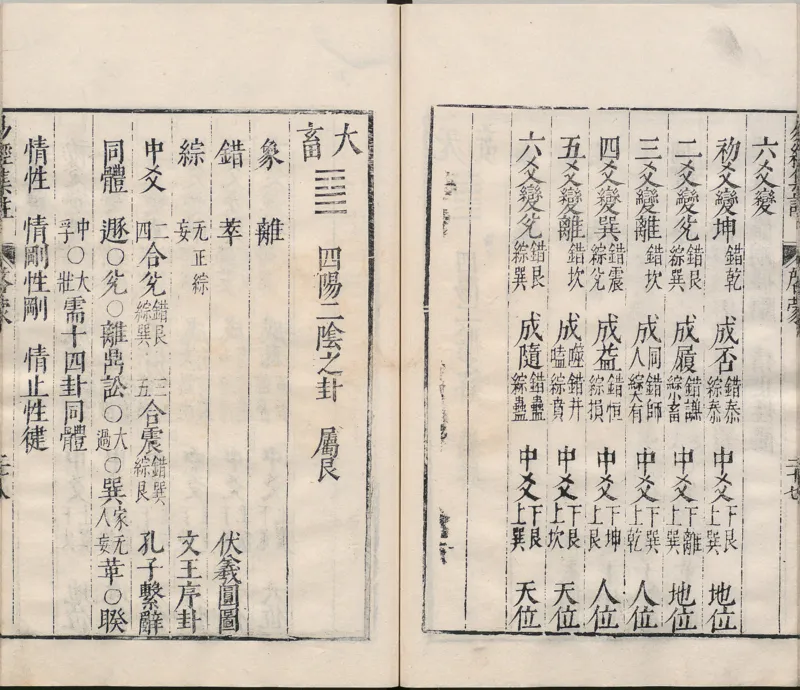 六爻變
初爻變坤 錯乾 成否 錯泰綜泰 中爻 下艮上巽 地位
二爻變兌 錯艮綜巽 成履 錯謙綜小畜 中爻 下離上巽 地位
三爻變離 錯坎 成同人 錯師綜大有 中爻 下巽上乾 人位
四爻變巽 錯震綜兌 成益 錯恒綜損 中爻 下坤上艮 人位
五爻變離 錯坎 成噬嗑 錯井綜賁 中爻 下艮上坎 天位
六爻變兌 錯艮綜巽 成隨 錯蠱綜蠱 中爻 下艮上巽 天位
大畜 ䷙ 四陽二陰之卦 屬艮
象 離
錯 萃 伏羲圓圖
綜 无妄正綜 文王序卦
中爻 二四合兌 錯艮綜巽 三五合震 錯巽綜艮 孔子繫辭
同體 遯○兌○離鼎訟○大過○巽家人无妄革○睽
中孚○大壯需十四卦同體
情性 情剛性剛 情止性健